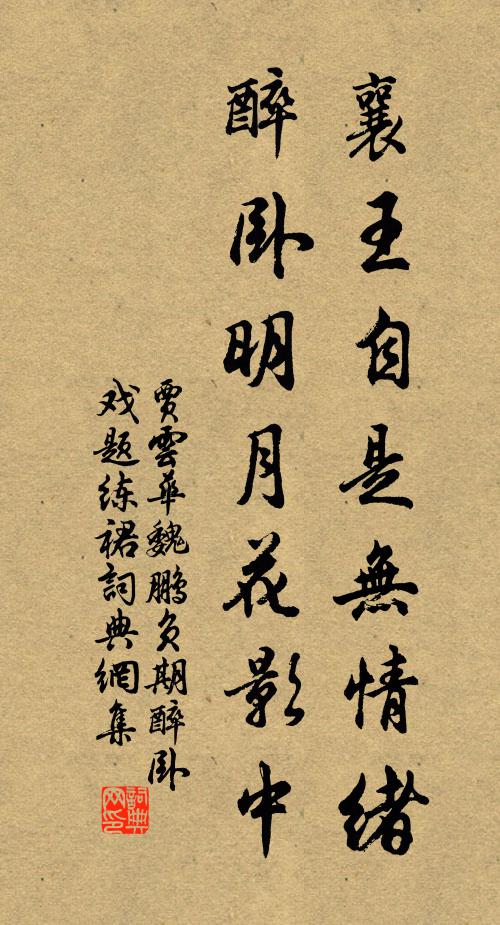 襄王自是無情緒
醉卧明月花影中
賈雲華魏鵬負期醉卧
戏題练裙詞典網集
詞典网印